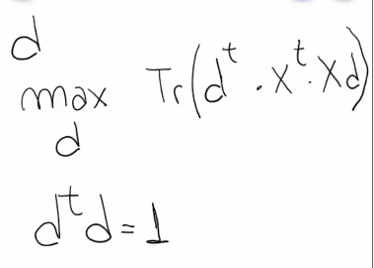 d
max Tr(d^t . X^t . Xd)
d
d^t d = 1